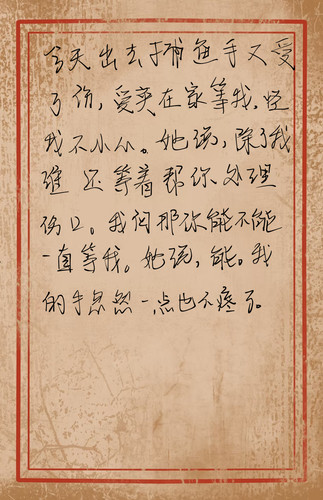 今天出去捕鱼手又受
了伤，爱奕在家等我，怪
我不小心。她强，除了我
谁还等着帮你处理
伤口。我问那你能不能
一直等我。她强，能。我
的手忽然一点也不疼了。